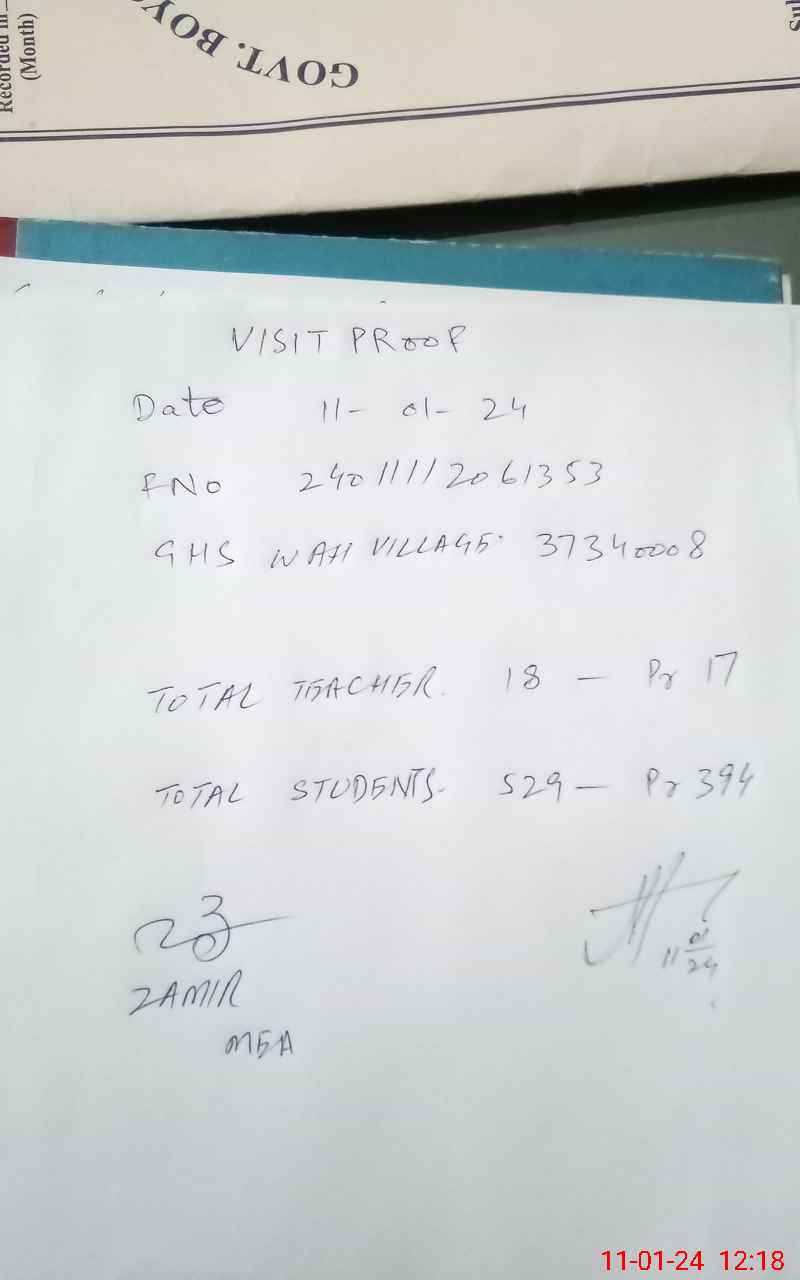 Recorded in
(Month)
GOVT. BOY
Su
VISIT PROOF
Date 11- 01- 24
FNo 24011112061353
GHS WAH VILLAGE. 37340008
TOTAL TEACHER. 18 — Pr 17
TOTAL STUDENTS. 529 — Pr 394
ZAMIR
MEA
11 01/24
11-01-24 12:18